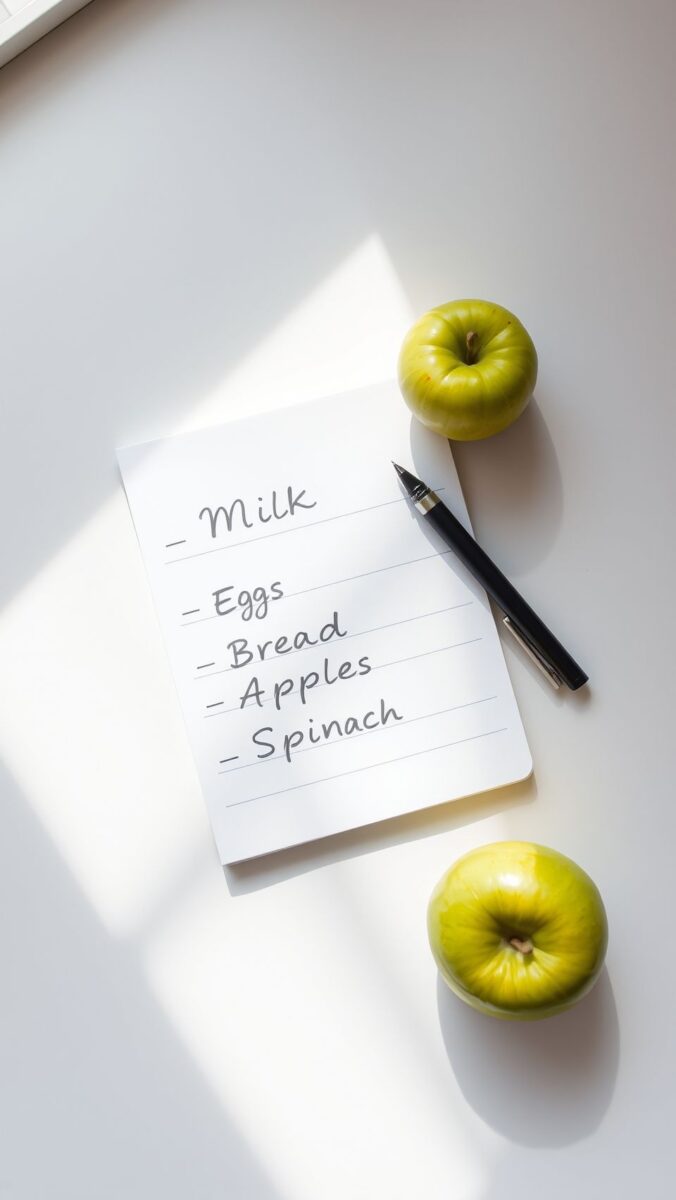 - Milk
- Eggs
- Bread
- Apples
- Spinach